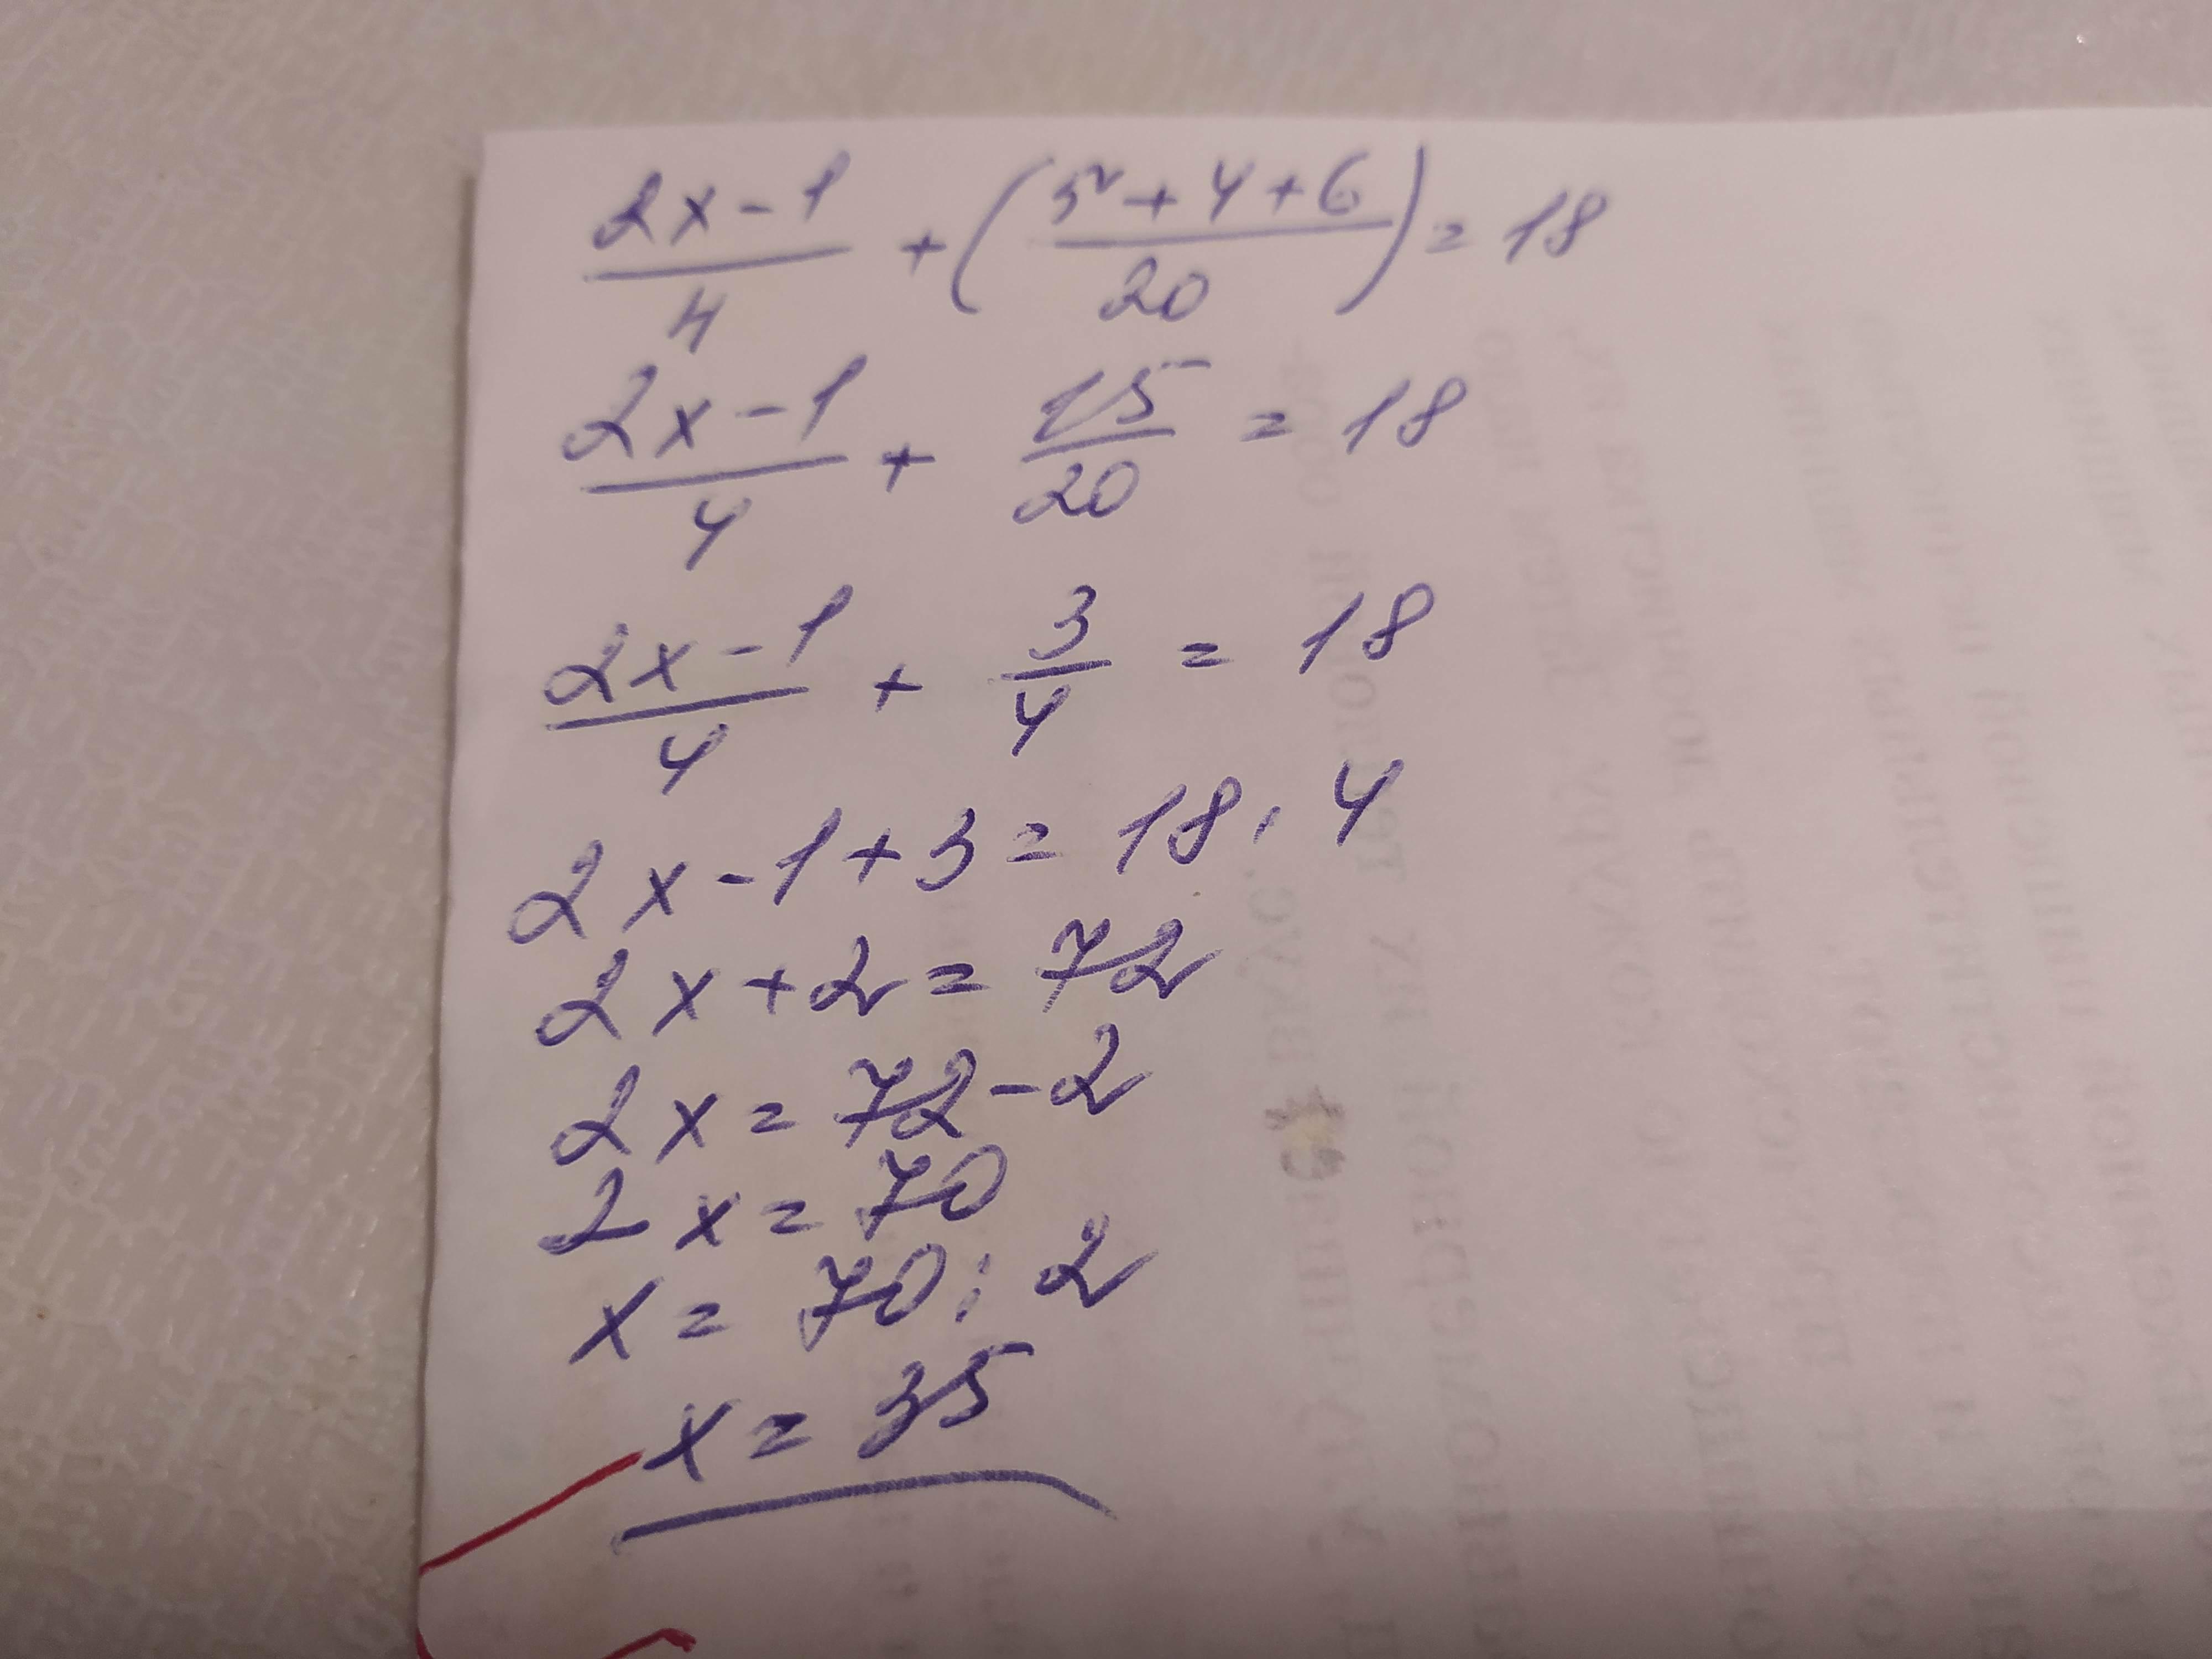 (2x-1)/4 + ((5+4+6)/20) = 18
(2x-1)/4 + 15/20 = 18
(2x-1)/4 + 3/4 = 18
2x-1+3 = 18·4
2x+2 = 72
2x = 72-2
2x = 70
x = 70:2
x = 35